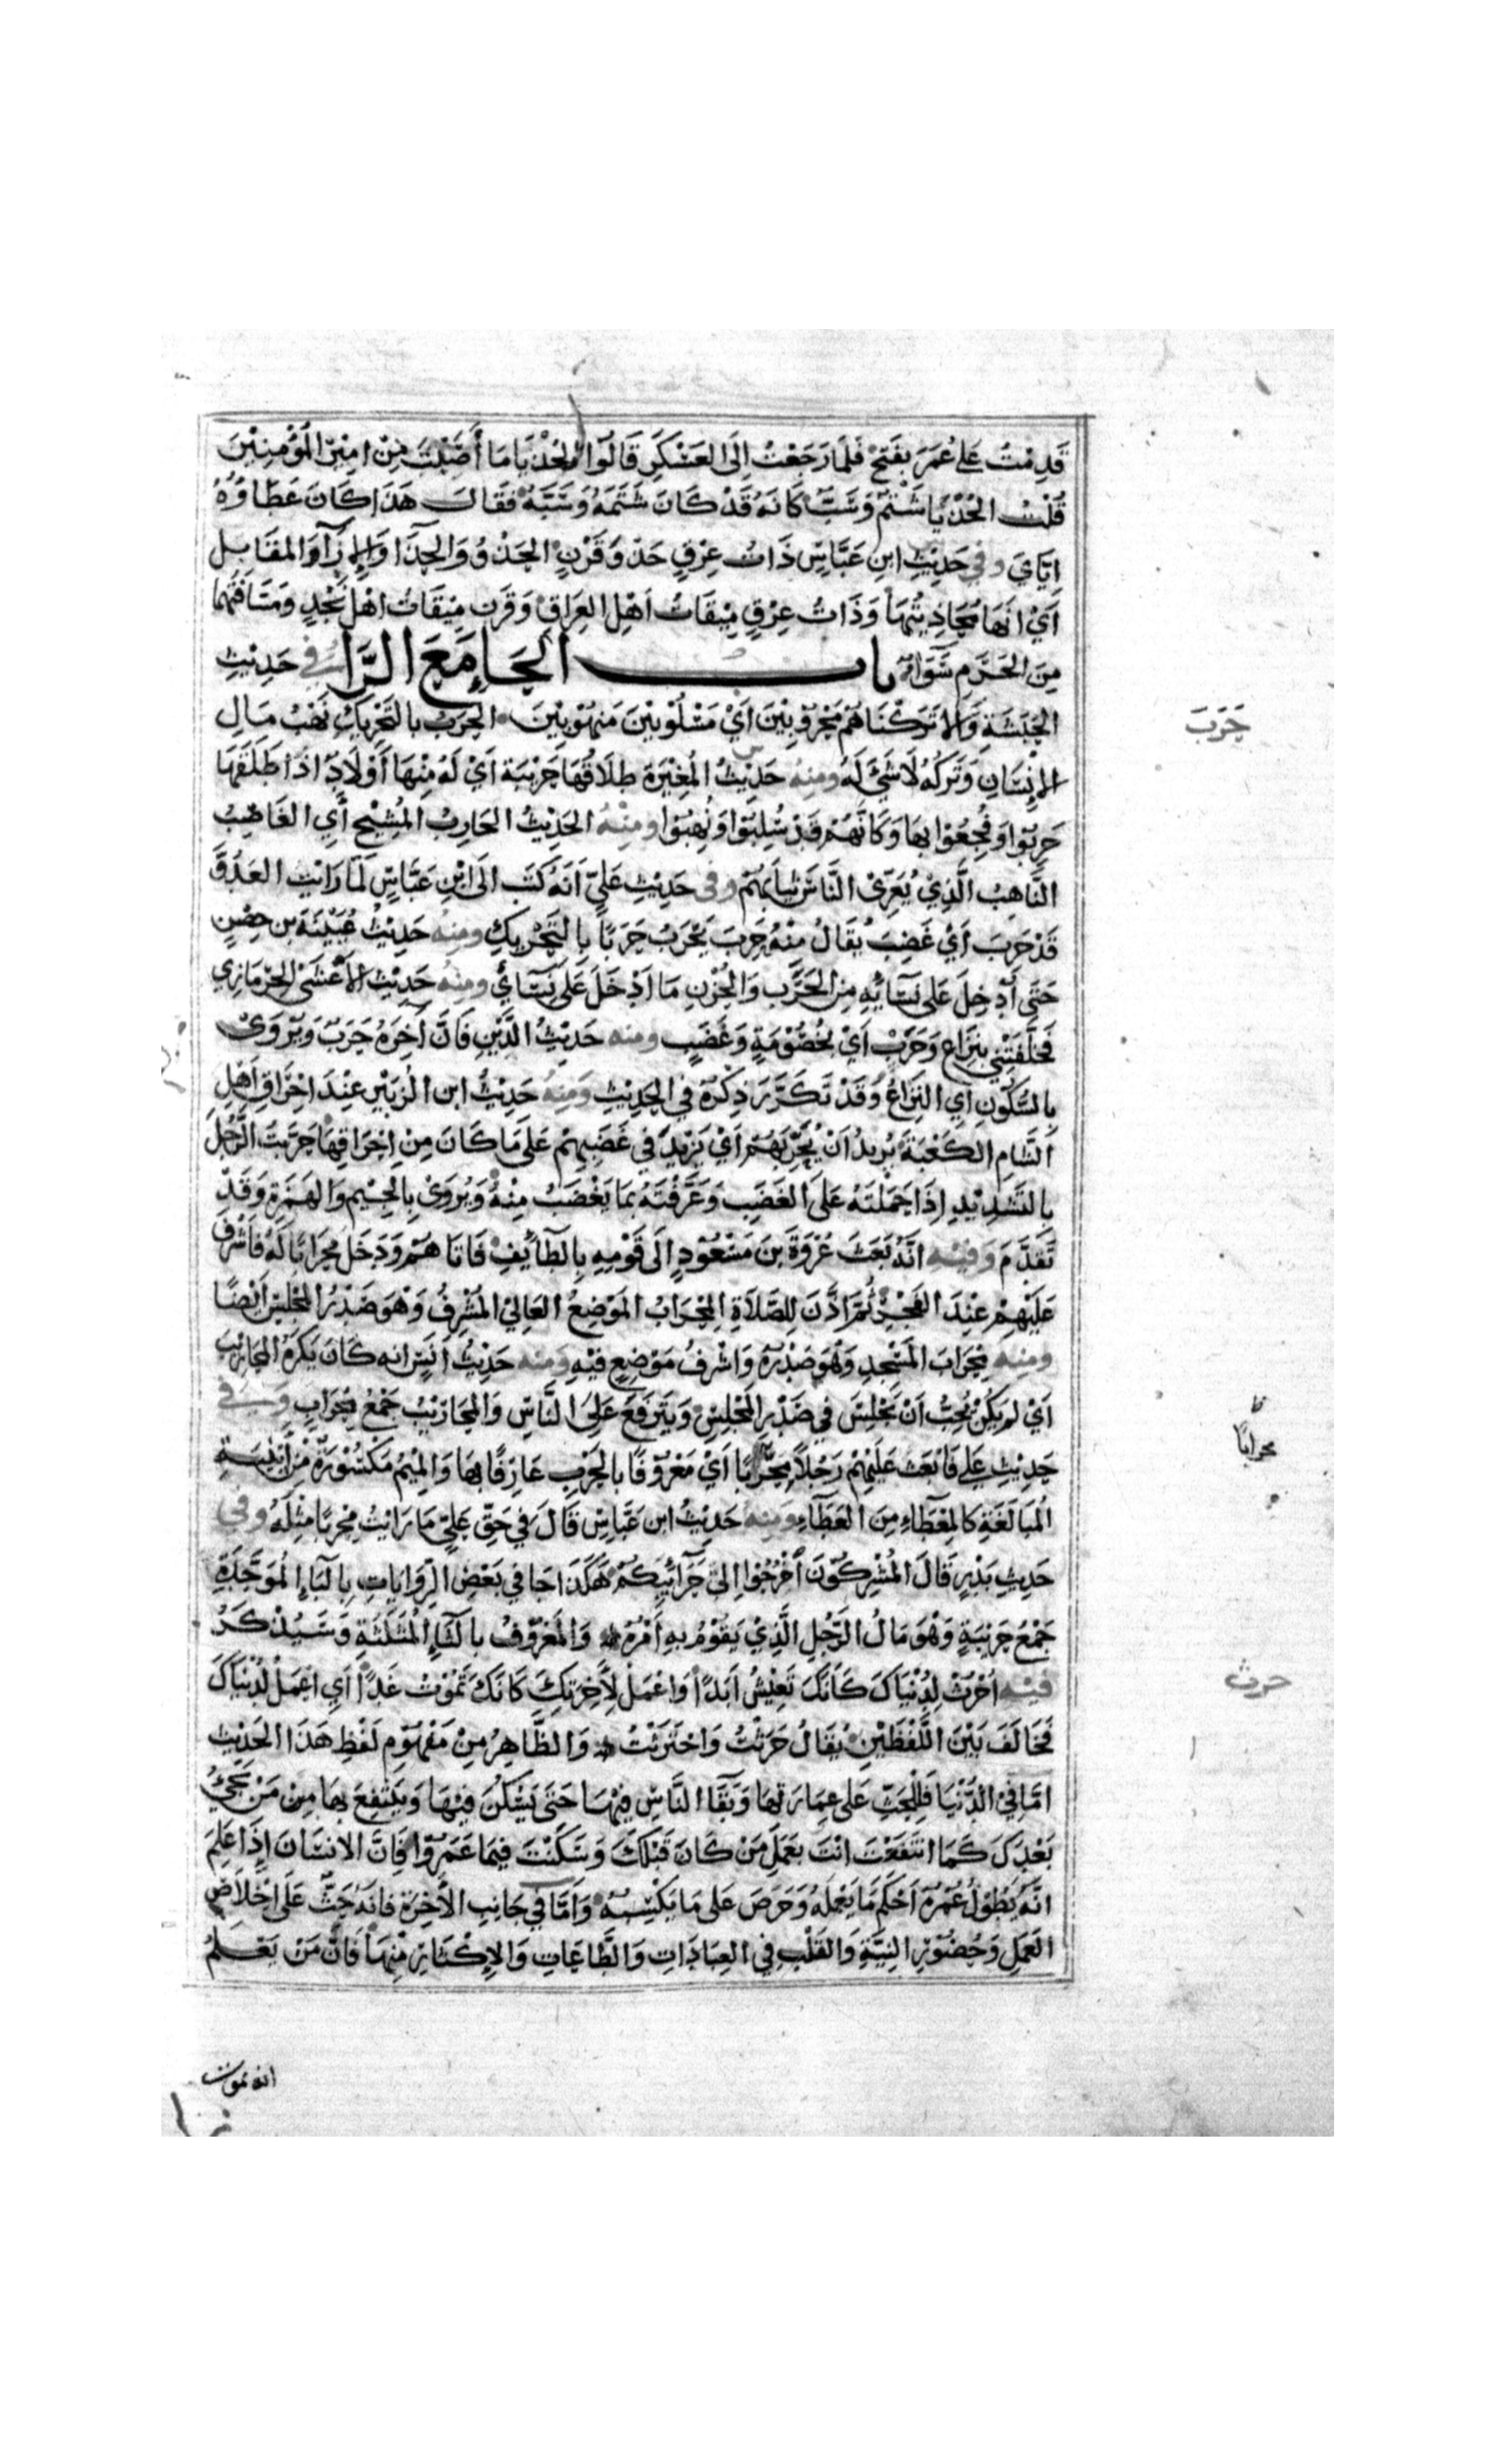 قَدِمْتُ عَلَى عُمَرَ بِفَتْحٍ فَلَمَّا رَجَعْتُ إِلَى العَسْكَرِ قَالُوا الحُذْيَا مَا أَصَبْتَ مِنْ امِيْرِ المُؤْمِنِيْنَ
قُلْتُ الحُذْيَا شَتْمٌ وَسَبٌّ كَانَهُ قَدْ كَانَ شَتَمَهُ وَسَبَّهُ فَقَالَ هَذَا كَانَ عَطَاؤُهُ
اِيَّايَ وفي حَدِيْثِ ابنِ عَبَّاسٍ ذَاتُ عِرْقٍ حَذْوَ قَرْنٍ الحَذْوُ وَالحِذَآ وَالإِزَآ وَالمقَابِل
اَيْ انَهَا مُحَاذِيتُهَا وَذَاتُ عِرْقٍ مِيْقَاتُ اَهْلِ العِرَاقِ وَقَرْن مِيْقَاتُ اهْلِ نَجْدٍ وَمَسَافَتُهُمَا
مِنَ الحَرَمِ سَوَآءٌ باب الحَاءِ مَعَ الرَّاءِ في حَدِيْثِ
الحُدَيْبِيَةِ وَالا تَرَكْنَاهُمْ مَحْرُوْبِيْنَ اَيْ مَسْلُوْبِيْنَ مَنهُوْبِيْنَ الحَرَبُ بالتَّحْرِيْكِ نَهْبُ مَالِ
الإِنْسَانِ وَتَرَكُهُ لَا شَئَ لَهُ ومنِهُ حَدِيْثُ المُغِيْرَة طَلَاقُهَا حَرِيْبَة اَيْ لَهُ مِنْهَا اَوْلَادٌ اذَا طَلَّقَهَا
حَرِبُوا وَفُجِعُوْا بِهَا وَكَانَّهُمْ قَدْ سُلِبُوا وَنُهِبُوا ومِنْهُ الحَدِيْثُ الحَارِبُ المُشْلِحُ أَيِ الغَاصِبُ
النَّاهِبُ الَّذِيْ يُعَرِّى النَّاسَ ثيابَهُمْ وفى حَدِيْثِ عَلِيٍّ اَنَهُ كَتَبَ الَى ابْنِ عَبَّاسٍ لَمَّا رَايْت العَدُوَّ
قَدْ حَرِبَ اَيْ غَضِبَ يُقَالُ مِنْهُ حَرِبَ يَحْرَبُ حَرَبًا بِالتَّحْرِيكِ ومِنِهُ حَدِيْثُ عُيَيْنَةَ بن حِصْنٍ
حَتَى اُدْخِلَ عَلَى نِسَائِهِ مِنَ الحَرَبِ وَالحُزْنِ مَا اَدْخَلَ عَلَى نِسَائي ومِنْهُ حَدِيْث الأَعْشَى الحِرْمَازِي
فَخَلَّفَتْنِي بِنِزَاعٍ وَحَرَبْ اَيْ بِخُصُوْمَةٍ وَغَضَبٍ ومنه حَدِيْثُ الدَّيْنِ فَانَّ آخِرَهُ حَرَبٌ وَيُرْوَى
بِالسُّكُونِ اَيِ النِّزَاعُ وَقَدْ تَكَرَّرَ ذِكْرُهُ في الحَدِيْثِ وَمِنِهُ حَدِيْثُ ابن الزُّبَيْرِ عِنْدَ احْرَاقِ اَهْلِ
الشَامِ الكَعْبَةَ يُرِيْدُ اَنْ يُحَرِّبَهُمْ اَيْ يَزِيْدَ في غَضَبِهِمْ عَلَى مَا كَانَ مِنْ اِحْرَاقِهَا حَرَّبْتَ الرَّجُلَ
بالتَّشْدِيْدِ اِذَا حَمَلْتَهُ عَلَى الغَضَبِ وَعَرَّفْتَهُ بِمَا يَغْضَبُ مِنْهُ وَيُرْوَىْ بِالجِيْمِ وَالهَمَزَةِ وَقَدْ
تَقَدَّمَ وَفيهِ انَّهُ بَعَثَ عُرْوَةَ بنَ مَسْعُوْدٍ اِلَى قَوْمِهِ بِالطَّائِفِ فَاتَا هُمْ وَدَخَلَ مِحْرَابًا لَهُ فَاَشْرَفَ
عَلَيْهِمْ عِنْدَ الفَجْرِ ثُمَّ اذَّنَ لِلصَّلَاةِ المِحْرَابُ المَوْضِعُ العَالِيْ المُشْرِفُ وَهْوَ صَدْرُ المَجْلِسِ اَيْضًا
ومنِهِ مِحْرَابَ المَسْجِدِ وَهْوَ صَدْرُهُ وَاشْرفُ مَوْضِعٍ فيْهِ وَمنه حَدِيْثُ اَنَسٍ انه كَانَ يَكْرَهُ المَحَارِيْبَ
اَيْ لَم يَكُنْ يُحِبُّ اَنْ يَجْلِسَ في صَدْرِ المَجْلِسِ وَيَتَرَفَّعَ عَلَى النَّاسِ وَالمحَارِيْبُ جَمْعُ مِحْرَابٍ وَفي
حَدِيْثِ عَلِيٍّ فَابْعَث عَلَيْهِمْ رَجُلًا مِحْرَابًا اَيْ مَعْرُوفًا بالحَرْبِ عَارِفًا بِهَا وَالمِيْمُ مَكْسُوْرَةٌ مِنْ اَبْنِيَةِ
المُبَالَغَةِ كَالمِعْطَاءِ مِنَ العَطَآءِ وَمِنِهُ حَدِيْثُ ابن عَبَّاسٍ قَالَ في حَقِّ عَلِيٍّ مَا رَايْتُ مِحْرَبًا مِثْلَهُ وفي
حَدِيثِ بَدْرٍ قَالَ المُشْرِكُوْنَ اُخْرُجُوا اِلَى حَرَائِبِكُمْ هَكَذَا جَا في بَعْضِ الرِّوَايَاتِ بِالبَاءِ المُوَحَّدَةِ
جَمْعَ حَرِيْبَةٍ وَهْوَ مَالُ الرَّجُلِ الَّذِيْ يَقُوْمُ بِهِ اَمْرُهُ وَالمَعْرُوْفُ بالثَّاءِ المُثَلَّثَةِ وَسَيُذْكَرُ
فيهِ اُحْرُثْ لِدُنْيَاكَ كَاَنَكَ تَعِيْشُ اَبَدًا وَاعْمَلْ لِآخِرَتِكَ كَانَكَ تَمُوْتُ غَدًا اَيِ اعْمَلْ لِدُنْيَاكَ
فَخَالَفَ بَيْنَ اللَّفْظَيْنِ يُقَالُ حَرَثْتُ وَاحْتَرَثْتُ وَالظَّاهِرُ مِنْ مَفْهُوْمِ لَفْظِ هَذَا الحَدِيْثِ
امَّا فِيْ الدُّنْيَا فَلِلْحَثِّ عَلَى عِمَارَتِهَا وَبَقَا النَّاسِ فيْهَا حَتَى يَسْكُنَ فيْهَا وَيَنْتَفِعَ بِهَا مِنْ مَنْ يَجِيُّ
بَعْدَكَ كَمَا انتَفَعْتَ انْتَ بِعَمَلِ مَنْ كَانَ قَبْلَكَ وَسَكَنْتَ فيمَا عَمَرُوا فَانَّ الانسَانَ اِذَا عَلِمَ
انَّهُ يَطُوْلُ عُمُرُهُ اَحْكَمَ مَا يَعْمَلُهُ وَحَرَصَ عَلَى مَا يَكْسِبُهُ وَاَمَّا في جَانِبِ الآخِرَةِ فَانَهُ حَثٌّ عَلَى اخْلَاصِ
العَمَلِ وَحُضُوْرِ النِيَّةِ وَالقَلْبِ في العِبَادَاتِ وَالطَّاعَاتِ وَالاِكْثَارِ مِنْهَا فَانَّ مَنْ يَعْلَمُ
حَرَبَ
محرابًا
حرث
انه يموت